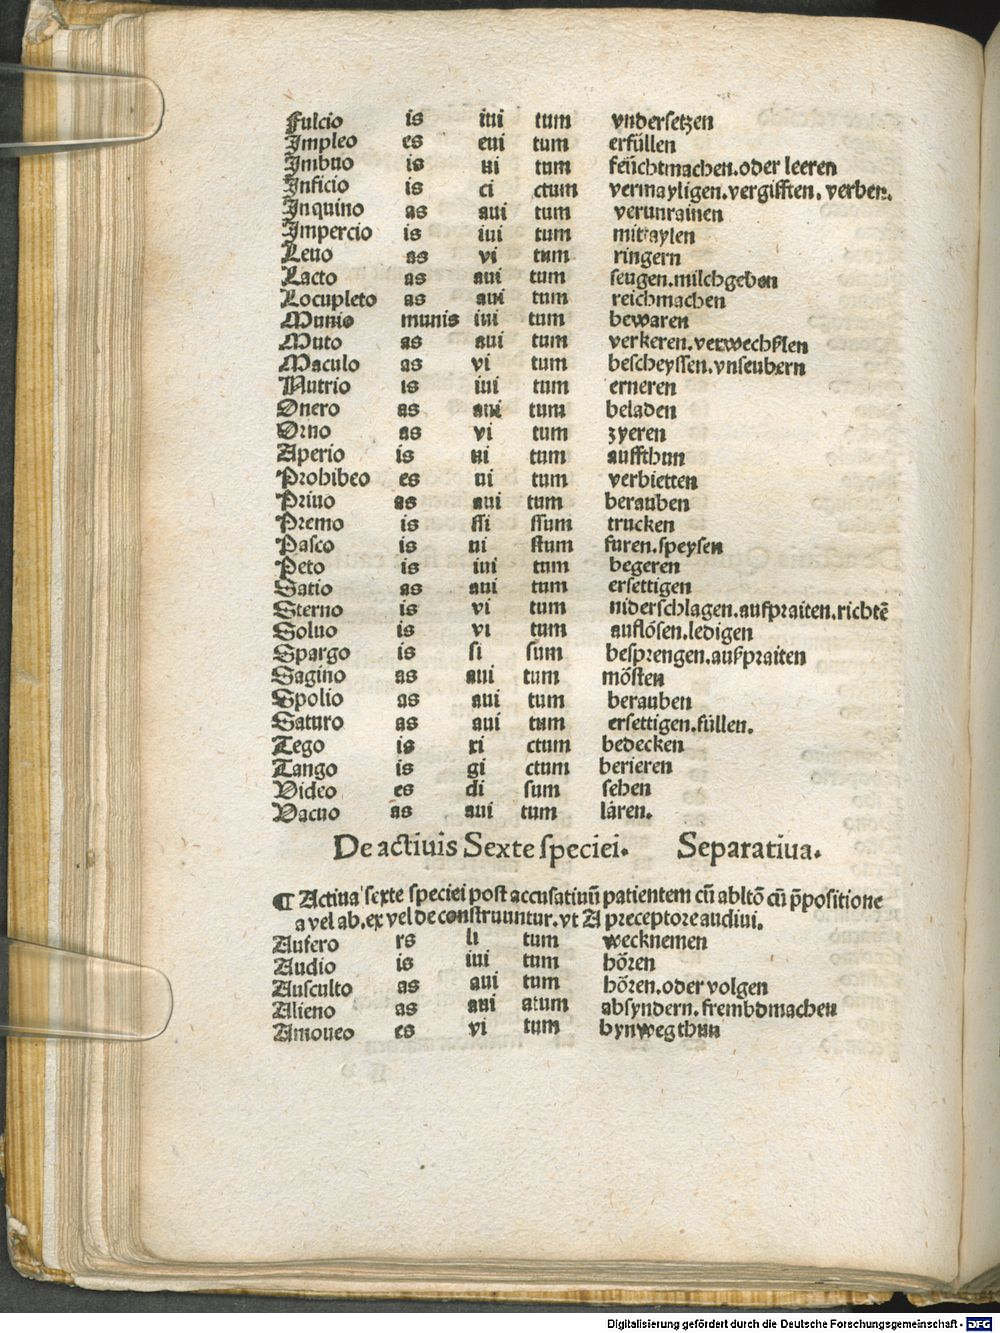 Fulcio is iui tum vndersetzen
Impleo es eui tum erfüllen
Imbuo is ui tum feüchtmachen.oder leeren
Inficio is ci ctum vermayligen.vergifften.verben.
Inquino as aui tum verunrainen
Impercio is iui tum mittaylen
Leuo as vi tum ringern
Lacto as aui tum seugen.milchgeben
Locupleto as aui tum reichmachen
Munio munis iui tum bewaren
Muto as aui tum verkeren.verwechßlen
Maculo as vi tum bescheyssen.vnseubern
Nutrio is iui tum erneren
Onero as aui tum beladen
Orno as vi tum zyeren
Aperio is ui tum auffthun
Prohibeo es ui tum verbietten
Priuo as aui tum berauben
Premo is ssi ssum trucken
Pasco is ui stum furen.speysen
Peto is iui tum begeren
Satio as aui tum ersettigen
Sterno is vi tum niderschlagen.aufpraiten.richtē
Soluo is vi tum auflösen.ledigen
Spargo is si sum besprengen.außpraiten
Sagino as aui tum mösten
Spolio as aui tum berauben
Saturo as aui tum ersettigen.füllen.
Tego is xi ctum bedecken
Tango is gi ctum berieren
Video es di sum sehen
Vacuo as aui tum lären.
De actiuis Sexte speciei. Separatiua.
¶ Actiua sexte speciei post accusatiuū patientem cū abltō cū p̄positione
a vel ab.ex vel de construuntur.vt A preceptore audiui.
Aufero rs li tum wecknemen
Audio is iui tum hören
Ausculto as aui tum hören.oder volgen
Alieno as aui atum absyndern.frembdmachen
Amoueo es vi tum hynwegthun
Digitalisierung gefördert durch die Deutsche Forschungsgemeinschaft - DFG